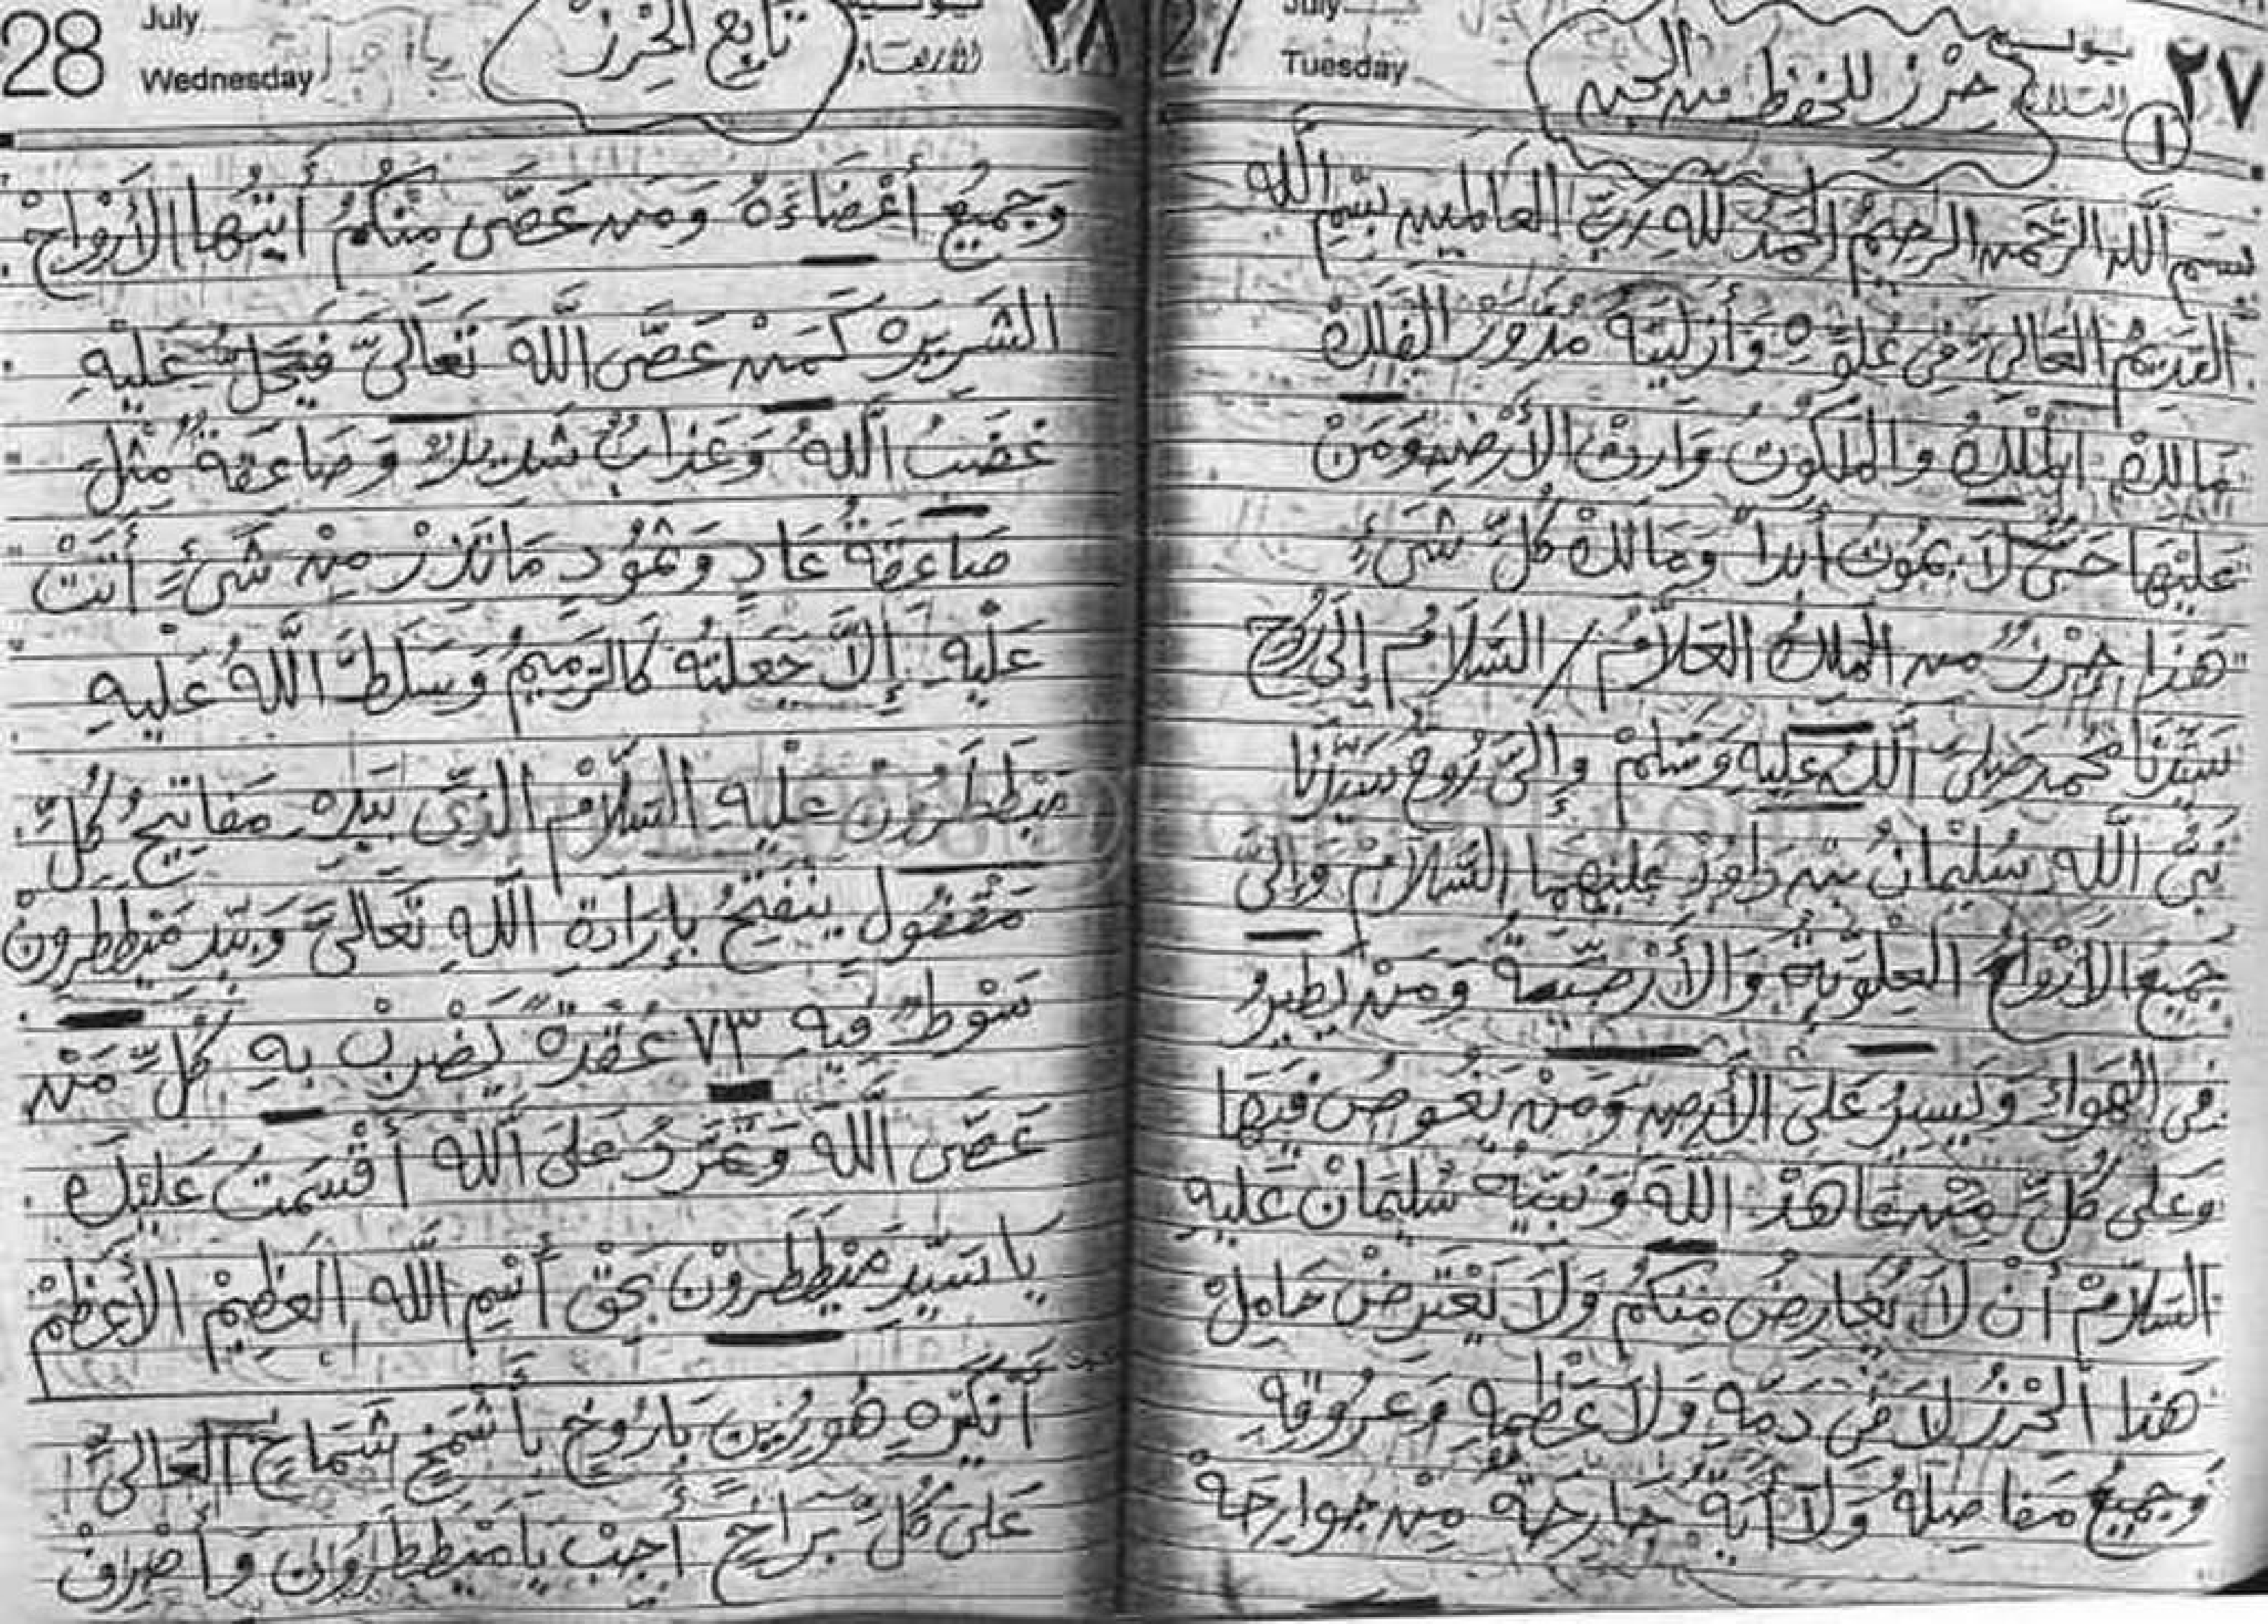 ٢٧
يوليو
الثلاثاء
July
Tuesday
27
١
حرز للحفظ من الجن
بِسْمِ اللَّهِ الرَّحْمَنِ الرَّحِيمُ الحَمْدُ للهِ رَبِّ العَالمين بِسْمِ اللَّه
القَدِيمُ العَالىِ فِى عُلوِّهِ وَأزَليَّتِهِ مُدَوِّرُ الفَلَكْ
مَالِكْ المُلْكْ والمَلَكُوت وَارِثْ الأَرْض وَمَنْ
عَليْهَا حَىٌّ لَا يَمُوتُ أبَداً وَمَالِكْ كُلِّ شَىْءٍ
هَذا حِرْزٌ من المَلِكُ العَلَّامُ / السَّلَامُ إلَى رُوحِ
سَيِّدْنَا محمد صَلىَّ اللَّهُ عَليْهِ وَسَلمْ وَإلىَ رُوح سَيِّدْنَا
نَبىُّ اللَّه سُليْمَانُ بن دَاوُدْ عَليْهِمَا السَّلَامْ وَإلىَ
جَمِيعَ الأرْوَاحْ العِلوِيَّه وَالأرْضِيَّه وَمَنْ يَطِيرُ
فِى الهَوَاءِ وَيَسِيرُ عَلىَ الأرْض وَمَنْ يَغُوصُ فِيهَا
وَعَلى كُلِّ مَنْ عَاهَدْ اللَّه وَنَبِيِّه سُليْمَانْ عَليْهِ
السَّلَامْ أنْ لَا يُعَارِضُ مِنْكُمُ وَلَا يَعْتَرِضْ حَامِلْ
هَذا الحْرْزُ لَا فِى دَمِّه وَلَا عَظْمِهِ وَعُرُوقِهِ
وَجَمِيعُ مَفَاصِلَهُ وَلَا أيَّةِ جَارِحَةٌ مِنْ جَوَارِحَهُ
28
July
Wednesday
تابع الحرز
يوليو
الأربعاء
٢٨
وَجَمِيْعُ أعْضَاءَهُ وَمَن عَصَّى مِنْكُمُ أيَّتُهَا الأرْوَاحْ
الشَّرِيرَهْ كَمَنْ عَصَّى اللَّهَ تَعَالىَ فَيَحَلُ عَليْهِ
غضَبُ اللَّهُ وَعَذَابٌ شَدِيدٌ وَصَاعِقَةٌ مُثِلَ
صَاعِقَةُ عَادٍ وَثَمُودٍ مَا تَذَرْ مِنْ شَىءٍ أتَتْ
عَلْيهِ إلَّا جَعَلتْهُ كَالرَّمِيمُ وَسَلطَ اللَّهُ عَليْهِ
مَيْطَطَرُون عَليْهِ السَّلَامُ الذِى بِيَدِهِ مَفَاتِيحُ كُلِّ
مَقْفُول يَنْفَتِحُ بِإرَادَةِ اللَّهِ تَعَالىَ وَبِيَدِ مَيْطَطَرُونْ
سَوْطٌ فِيهِ ٧٣ عُقْدَةً يَضْرِبْ بِهِ كُلِّ مَنْ
عَصَّى اللَّهَ وَتمَرَّدَ عَلىَ اللَّه أقْسَمَتُ عَليْكَ
يَا سَيِّدِ مَيْطَطَرُونْ بَحِقْ أسْمِ اللَّه العَظِيمُ الأَعْظَمْ
هُورِين بَارُوخ يَا أشْمَخْ شَمَاخِ العَالىِ
عَلىَ كُلِّ بَرَاخٍ أجِبْ يَا مَيْطَطَرُون وَأصْرِفْ